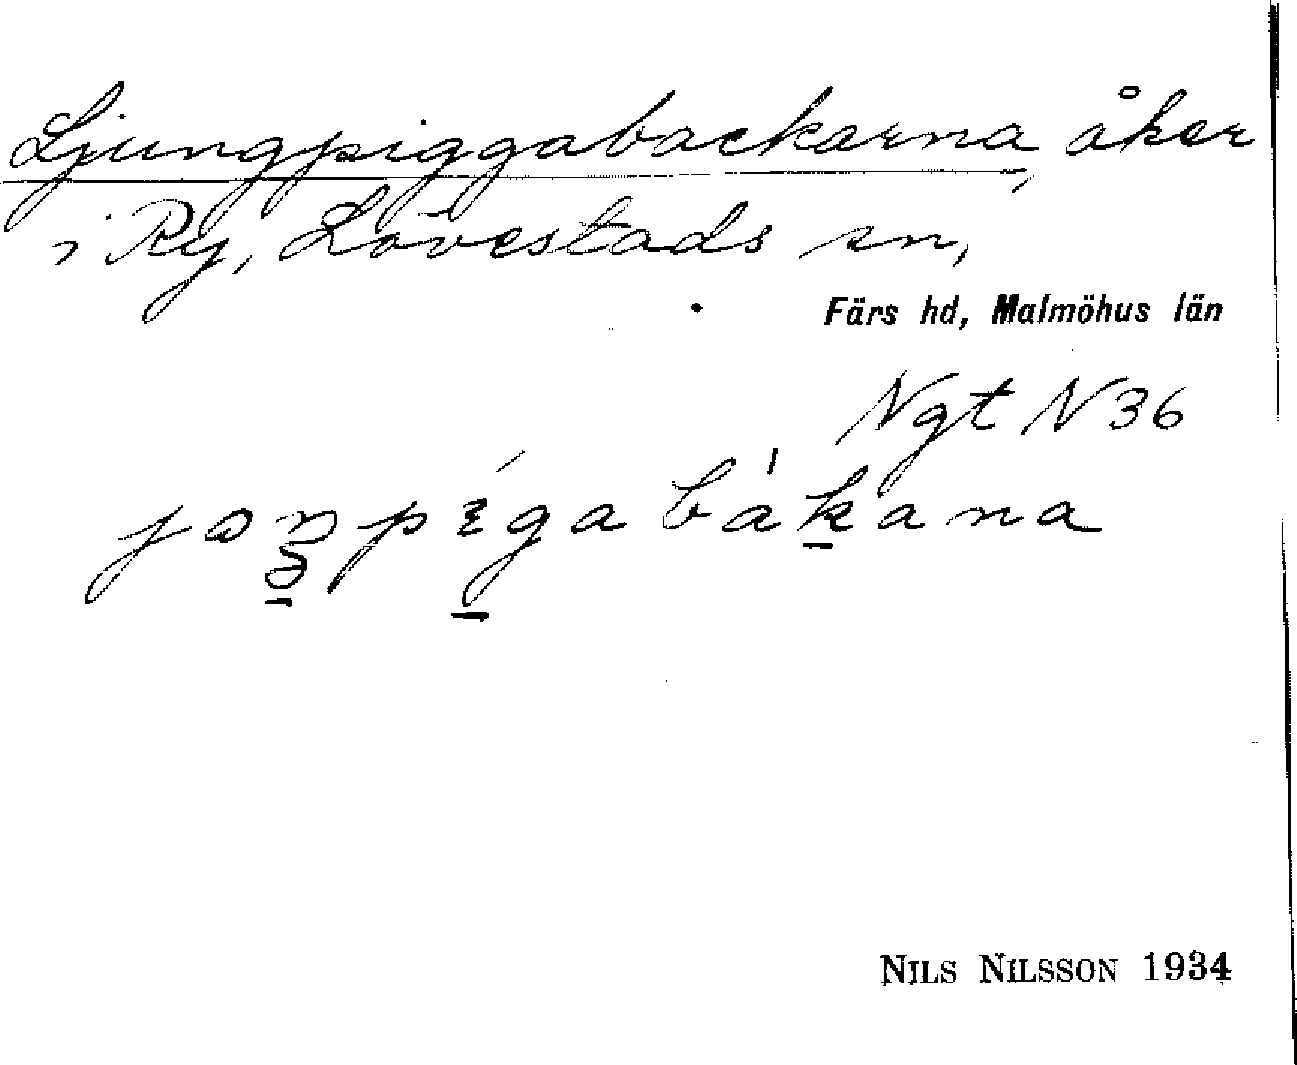 Ljungpiggabackarna, åker
i Ry, Lövestads sn,
Färs hd, Malmöhus län
Ngt N36
NILS NILSSON 1934